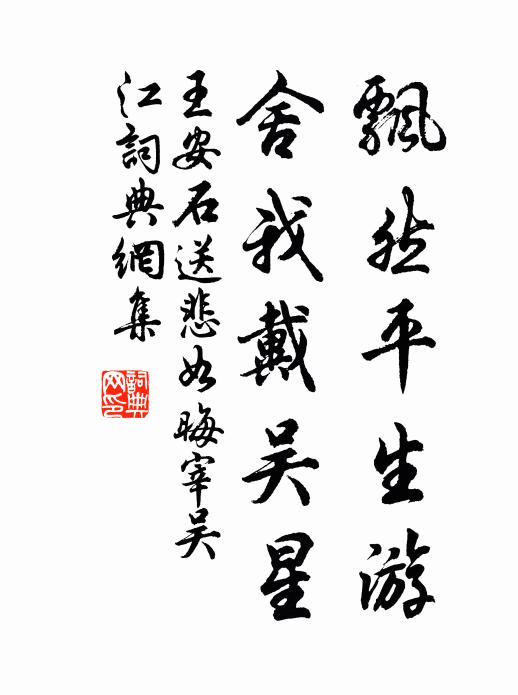 飄然平生游
舍我戴吴星
王安石送悲如晦宰吴
江詞典網集
詞典網印